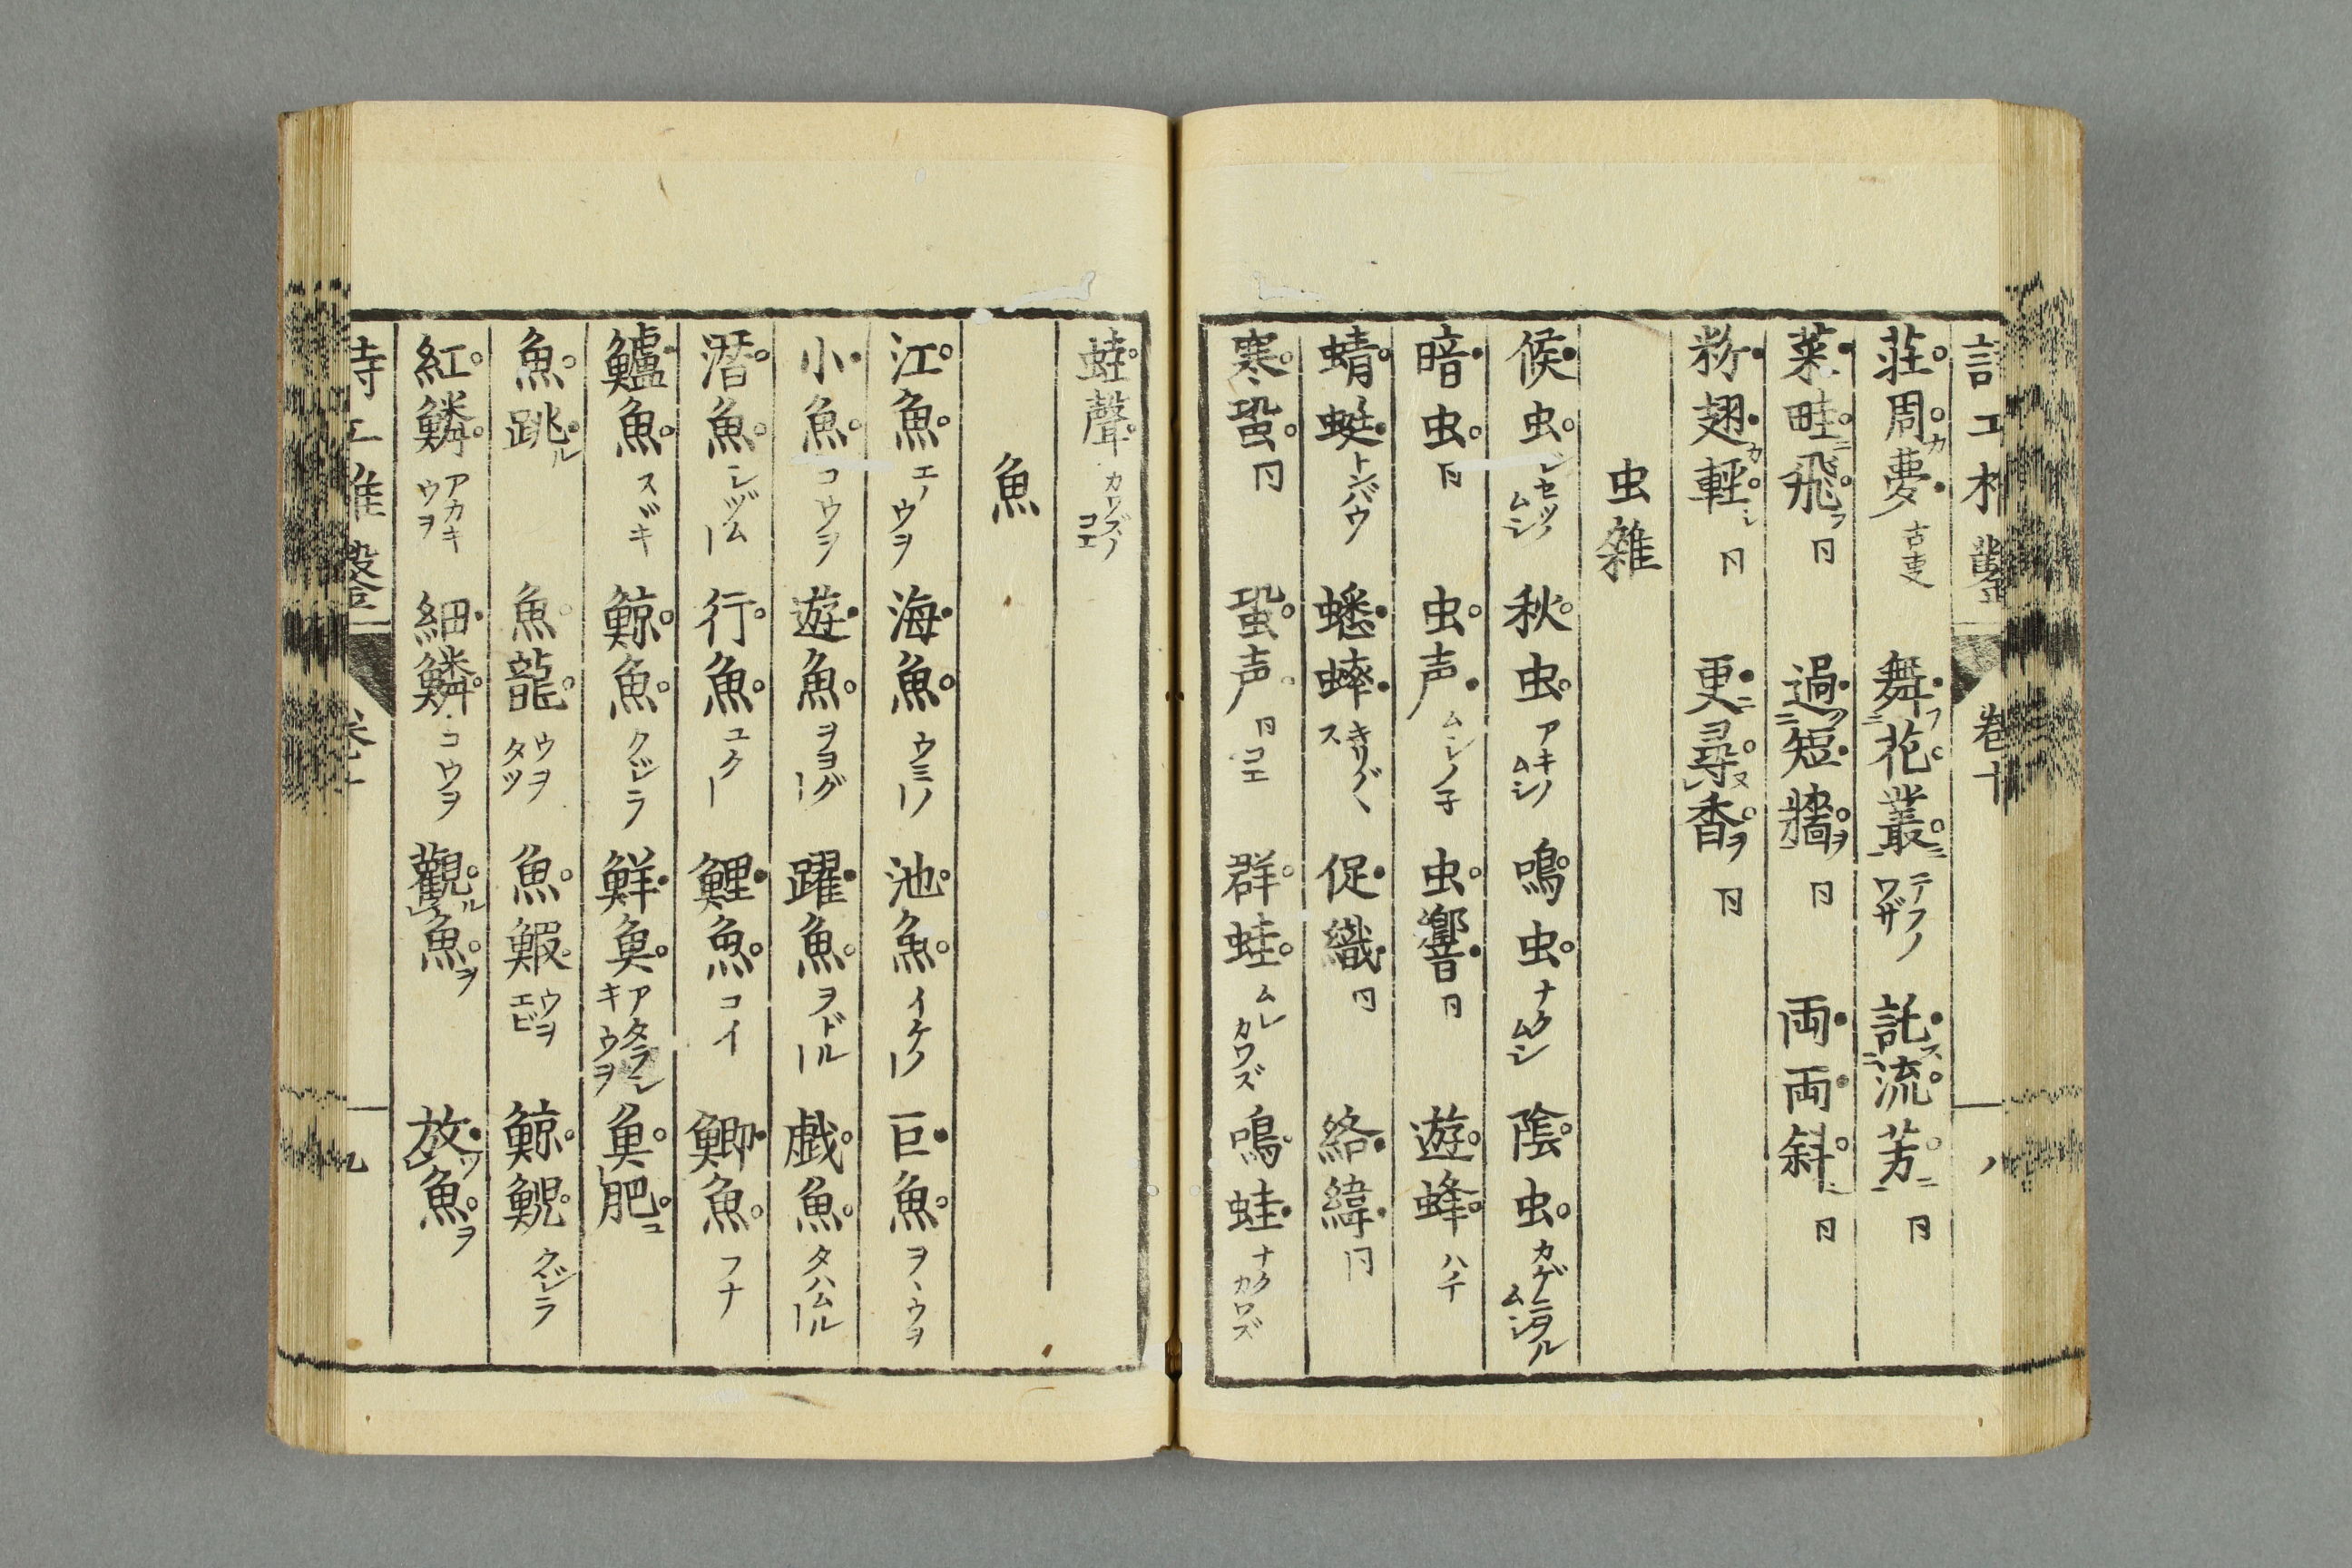 荘周カ夢 古吏 舞フ花叢ニ テフノワザ 託ス流芳ニ 同
菜畦ニ飛フ 同 過ク短牆ヲ 同 両両斜 同
粉翅カ輕シ 同 更ニ尋ヌ香ヲ 同
虫雜
候虫 シセツノムシ 秋虫 アキノムシ 鳴虫 ナクムシ 陰虫 カゲニヲルムシ
暗虫 同 虫声 ムシノ子 虫響 同 遊蜂 ハチ
蜻蜓 トンバウ 蟋蟀 キリグ〱ス 促織 同 絡緯 同
寒蛩 同 蛩声 同コエ 群蛙 ムレカワズ 鳴蛙 ナクカワズ
卷十
八
蛙聲 カワズノコエ
魚
江魚 エノウヲ 海魚 ウミノ｜ 池魚 イケノ｜ 巨魚 ヲヽウヲ
小魚 コウヲ 遊魚 ヲヨグ｜ 躍魚 ヲドル｜ 戯魚 タハムル｜
潛魚 シヅム｜ 行魚 ユク｜ 鯉魚 コイ 鯽魚 フナ
鱸魚 スヾキ 鯨魚 クジラ 鮮魚 アタラシキウヲ 魚肥ユ
魚跳ル 魚龍 ウヲタツ 魚鰕 ウヲエビ 鯨鯢 クジラ
紅鱗 アカキウヲ 細鱗 コウヲ 觀ル魚ヲ 放ツ魚ヲ
九